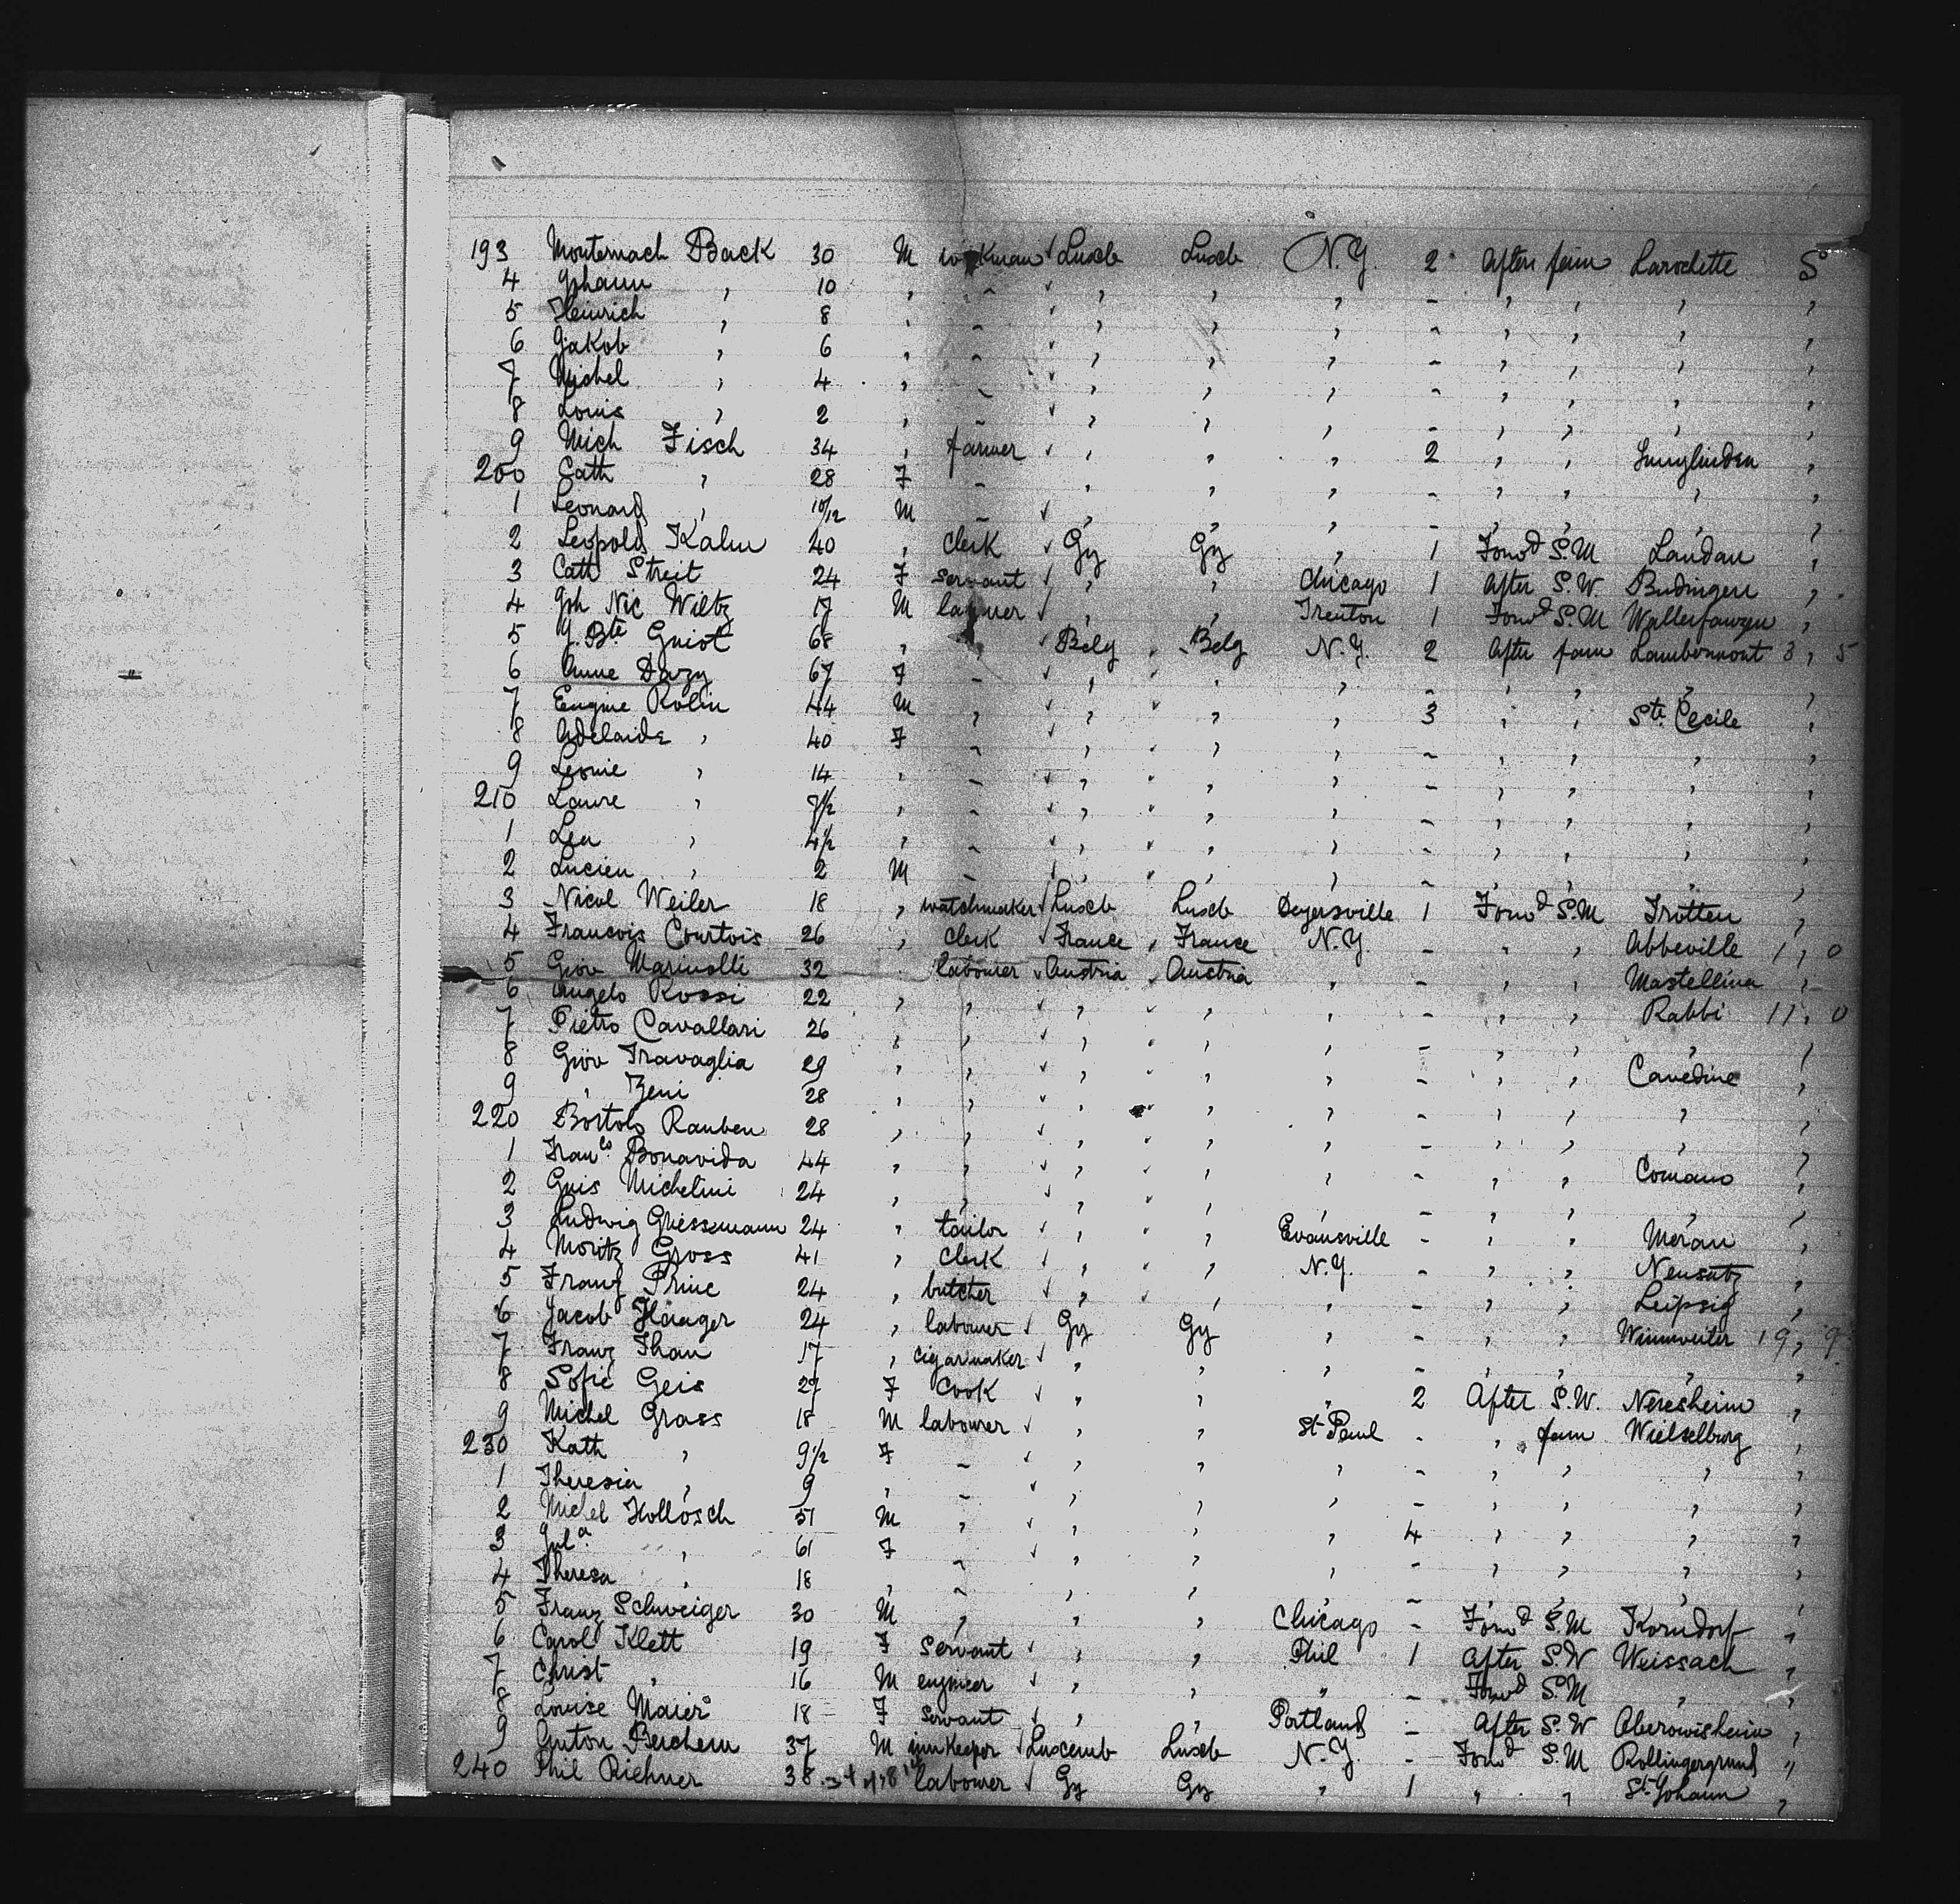 193 Monternach Back 30 M workman Luxeb Luxeb N.Y. 2 After fam Larochette S
4 Johann , 10 , - , , , - , , , ,
5 Heinrich , 8 , - , , , - , , , ,
6 Jakob , 6 , - , , , - , , , ,
7 Michel , 4 , - , , , - , , , ,
8 Louis , 2 , - , , , - , , , ,
9 Mich Fisch 34 , farmer , , , 2 , , Junglinden ,
200 Cath , 28 F - , , , - , , , ,
1 Leonard , 10/12 M - , , , - , , , ,
2 Leopold Kahn 40 , clerk Gy Gy , 1 Forwd S.M Landau ,
3 Cath Streit 24 F servant , , Chicago 1 After S.W. Budingen ,
4 Joh Nic Wiltz 17 M labourer , , Trenton 1 Forwd S.M ,
5 J. Bte Guiot 68 , , Belg Belg N.Y. 2 After fam Lambermont 3 , 5
6 Anne Dazy 67 F - , , , - , , , ,
7 Eugine Rolin 44 M , , , , 3 , , Ste Cecile ,
8 Adelaide , 40 F - , , , - , , , ,
9 Leonie , 14 , - , , , - , , , ,
210 Laure , 7 1/2 , - , , , - , , , ,
1 Lea , 4 1/2 , - , , , - , , , ,
2 Lucien , 2 M - , , , - , , , ,
3 Nicol Weiler 18 , watchmaker Luxeb Luxeb Dyersville 1 Forwd S.M Trotten ,
4 Francois Courtois 26 , clerk France France N.Y. - , , Abbeville 1 , 0
5 Giov Marinolli 32 , labourer Austria Austria , - , , Mastellina ,
6 Angelo Rossi 22 , , , , , - , , Rabbi 11 , 0
7 Pietro Cavallari 26 , , , , , - , , , ,
8 Giov Travaglia 29 , , , , , - , , Cavedine ,
9 , Zeni 28 , , , , , - , , , ,
220 Bortolo Rauben 28 , , , , , - , , , ,
1 Franco Bonavida 44 , , , , , - , , Comano ,
2 Guis Michelini 24 , , , , , - , , , ,
3 Ludwig Griessemann 24 , tailor , , Evansville - , , Meran ,
4 Moritz Gross 41 , clerk , , N.Y. - , , Neusatz ,
5 Franz Princ 24 , butcher , , , - , , Leipsig ,
6 Jacob Haager 24 , labourer Gy Gy , - , , Winnweiler 19 , 9
7 Franz Than 17 , cigarmaker , , , - , , , ,
8 Sofie Geis 27 F cook , , , 2 After S.W. Neresheim ,
9 Michel Grass 18 M labourer , , St Paul - , fam Wielselburg ,
230 Kath , 9 1/2 F - , , , - , , , ,
1 Theresia , 9 , - , , , - , , , ,
2 Michel Hollosch 51 M , , , , 4 , , , ,
3 Jula , 61 F - , , , - , , , ,
4 Theresa , 18 , - , , , - , , , ,
5 Franz Schweiger 30 M , , , Chicago - Forwd S.M Korndorf ,
6 Carol Klett 19 F Servant , , Phil 1 After S.W Weissach ,
7 Christ , 16 M engineer , , " - Forwd S.M , ,
8 Louise Maier 18 F Servant , , Portland - After S.W Oberowisheim ,
9 Anton Berchem 37 M innkeeper Luxemb Luxeb N.Y. - Forwd S.M Rollingergrund "
240 Phil Riehner 38 labourer Gy Gy , 1 , , St Johann ,